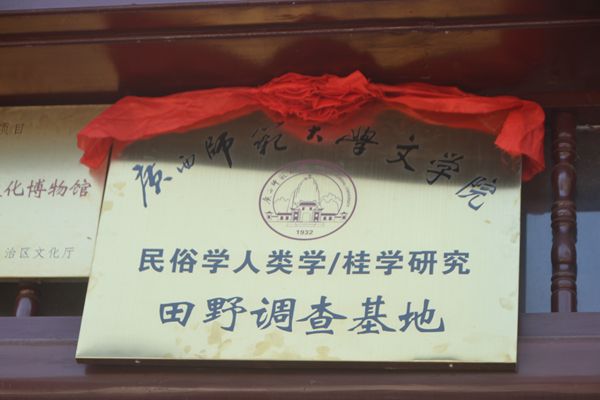 项目
化博物馆
治区文化厅
广西师范大学文学院
1932
民俗学人类学/桂学研究
田野调查基地